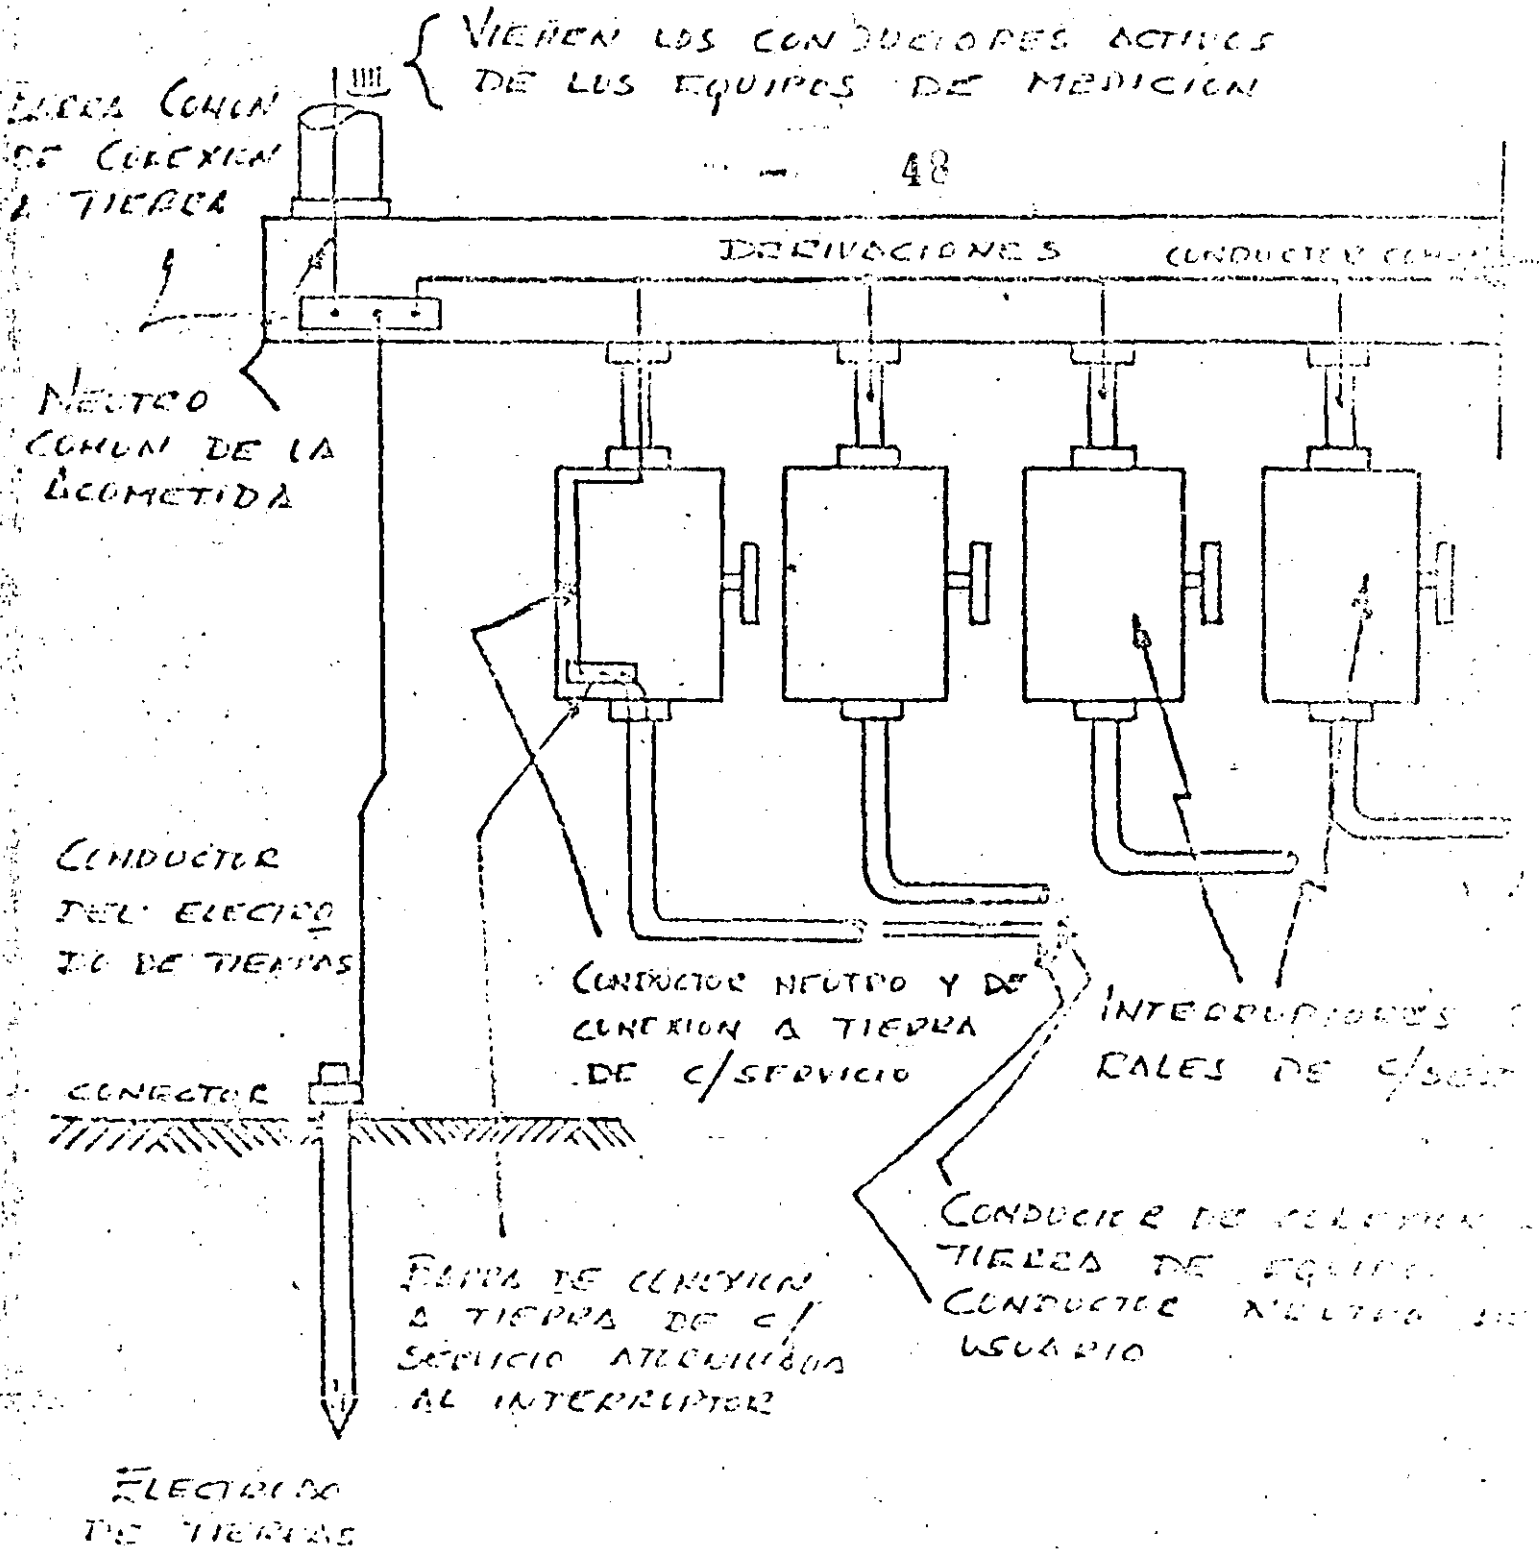 VIENEN LOS CONDUCTORES ACTIVOS
DE LOS EQUIPOS DE MEDICION
BARRA COMUN
DE CONEXION
A TIERRA
48
DERIVACIONES
CONDUCTOR
NEUTRO
COMUN DE LA
ACOMETIDA
CONDUCTOR
DEL ELECTRO
DO DE TIERRAS
CONDUCTOR NEUTRO Y DE
CONEXION A TIERRA
DE C/SERVICIO
INTERRUPTORES
RALES DE
CONECTOR
CONDUCTOR DE CONEXION
TIERRA DE
CONDUCTOR NEUTRO
USUARIO
BARRA DE CONEXION
A TIERRA DE C/
SERVICIO ATORNILLADA
AL INTERRUPTOR
ELECTRODO
DE TIERRAS